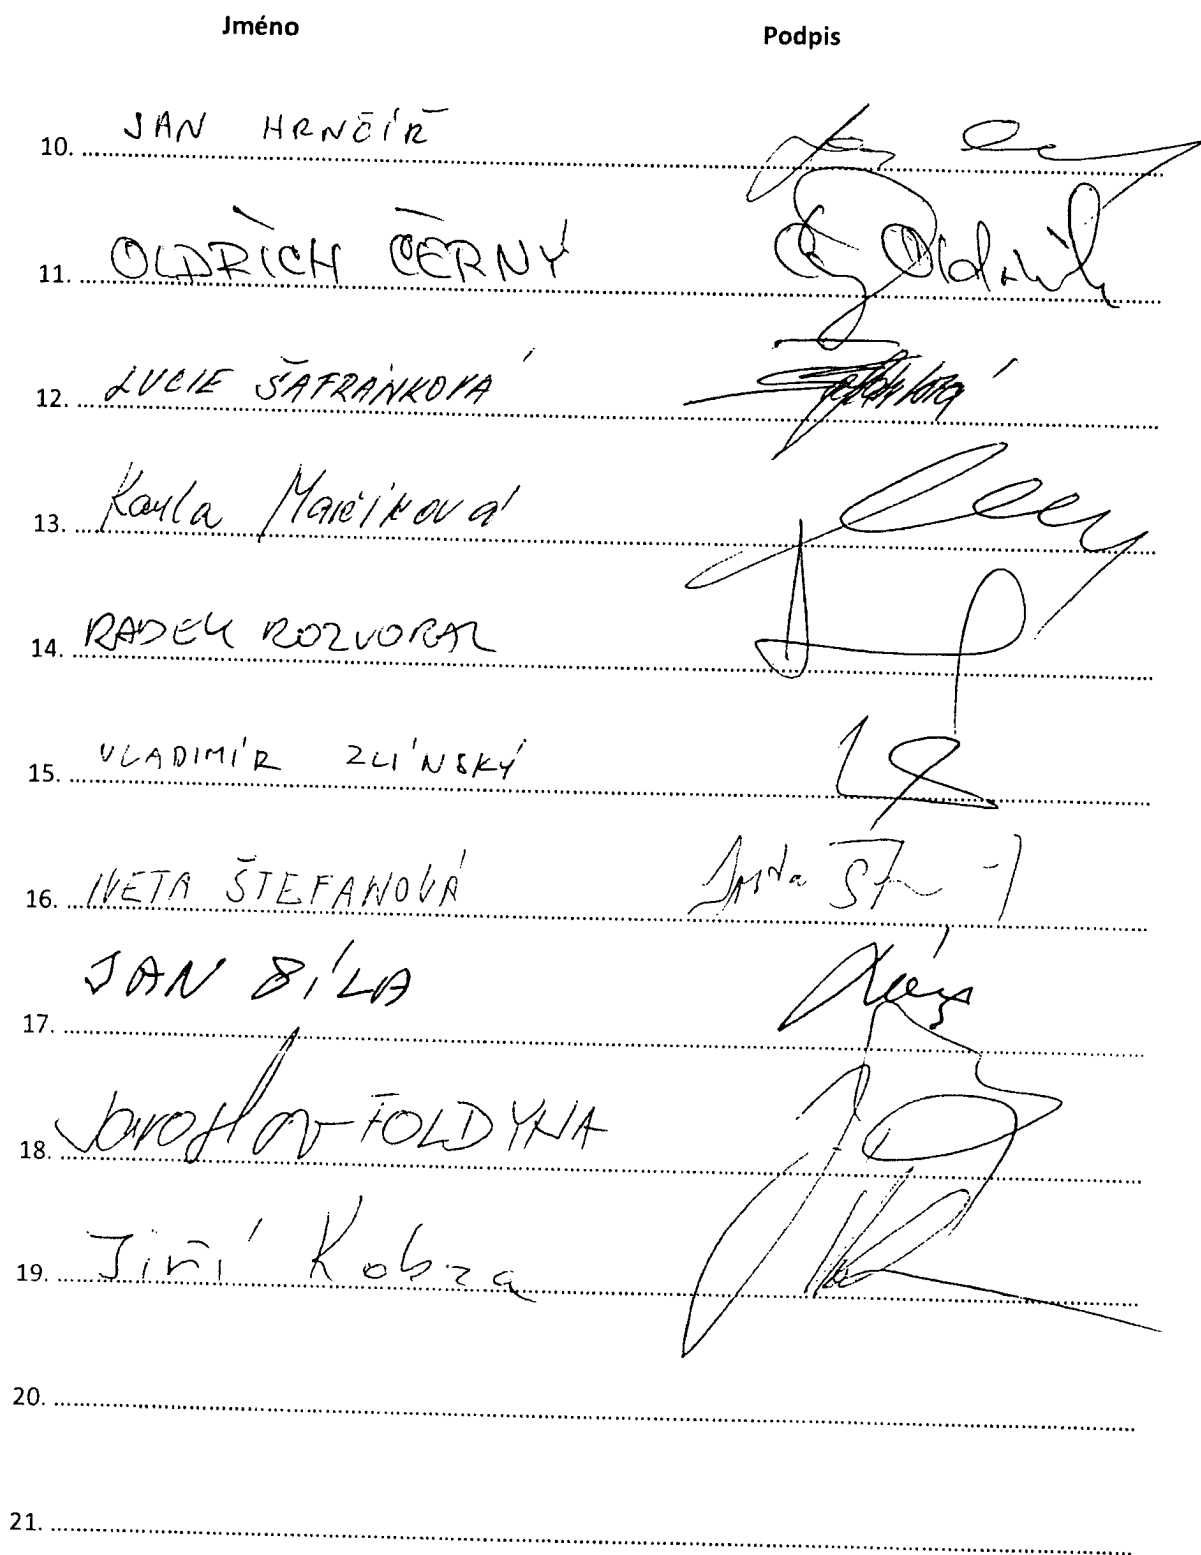 Jméno Podpis
10. JAN HRNČÍŘ
11. OLDŘICH ČERNÝ Oldřich
12. LUCIE ŠAFRÁNKOVÁ
13. Karla Maříková
14. RADEK ROZVORAL
15. VLADIMÍR ZLÍNSKÝ
16. IVETA ŠTEFANOVÁ
17. JAN SÍLA
18. Jaroslav FOLDYNA
19. Jiří Kobza
20.
21.